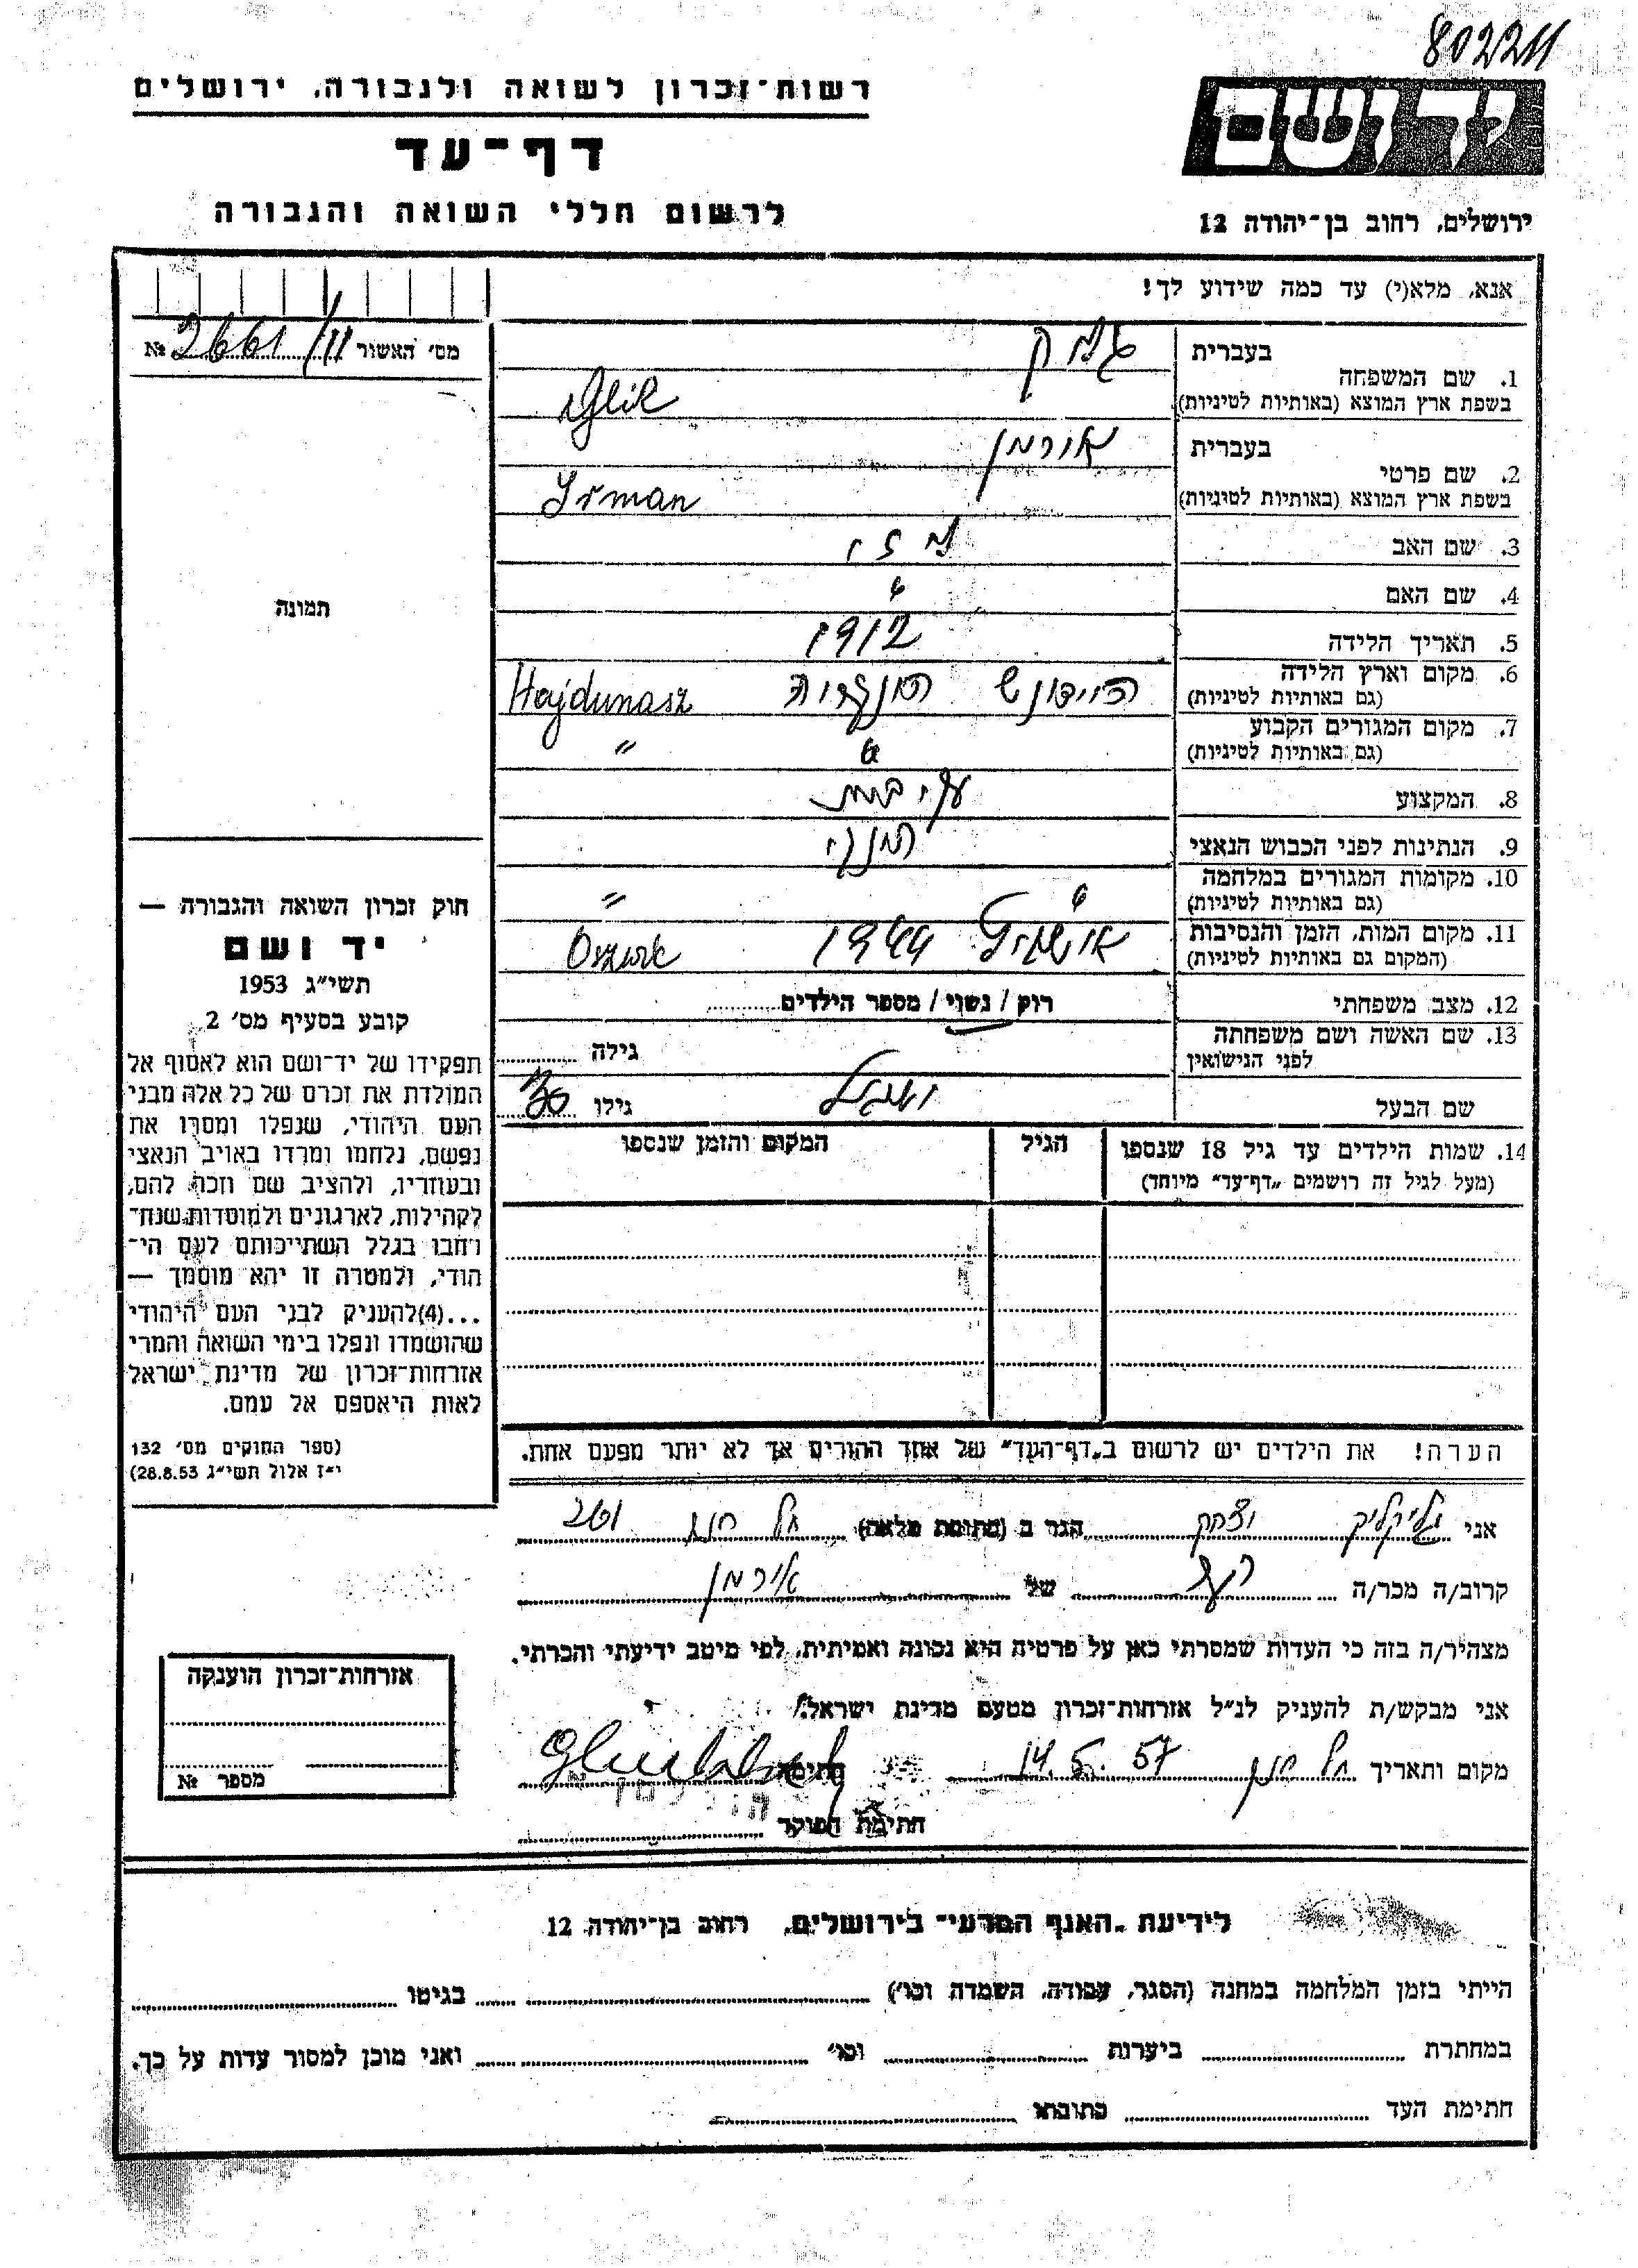 802211
רשות־זכרון לשואה ולגבורה, ירושלים
יד ושם
דף־עד
לרשום חללי השואה והגבורה
ירושלים, רחוב בן־יהודה 12
אנא, מלא(י) עד כמה שידוע לך!
מס׳ האשור 2661/11 №
1. שם המשפחה בעברית גליק
בשפת ארץ המוצא (באותיות לטיניות) Glik
2. שם פרטי בעברית אירמן
בשפת ארץ המוצא (באותיות לטיניות) Irman
3. שם האב
4. שם האם
5. תאריך הלידה 1912
6. מקום וארץ הלידה (גם באותיות לטיניות) היידונש הונגריה Hajdunasz
7. מקום המגורים הקבוע (גם באותיות לטיניות) " "
8. המקצוע
9. הנתינות לפני הכבוש הנאצי הונגרי
10. מקומות המגורים במלחמה (גם באותיות לטיניות) " "
11. מקום המות, הזמן והנסיבות (המקום גם באותיות לטיניות) 1944
12. מצב משפחתי רוק / נשוי / מספר הילדים
13. שם האשה ושם משפחתה לפני הנישואין גילה
שם הבעל גילו
14. שמות הילדים עד גיל 18 שנספו הגיל המקום והזמן שנספו
(מעל לגיל זה רושמים „דף־עד” מיוחד)
הערה! את הילדים יש לרשום ב„דף־העד” של אחד ההורים אך לא יותר מפעם אחת.
תמונה
חוק זכרון השואה והגבורה —
יד ושם
תשי״ג 1953
קובע בסעיף מס׳ 2
תפקידו של יד־ושם הוא לאסוף אל
המולדת את זכרם של כל אלה מבני
העם היהודי, שנפלו ומסרו את
נפשם, נלחמו ומרדו באויב הנאצי
ובעוזריו, ולהציב שם וזכר להם,
לקהילות, לארגונים ולמוסדות שנח־
רבו בגלל השתייכותם לעם הי־
הודי, ולמטרה זו יהא מוסמך —
...(4)להעניק לבני העם היהודי
שהושמדו ונפלו בימי השואה והמרי
אזרחות־זכרון של מדינת ישראל
לאות היאספם אל עמם.
(ספר החוקים מס׳ 132
י״ז אלול תשי״ג 28.8.53)
אני יצחק הגר ב (כתובת מלאה) תל חנן 261
קרוב/ה מכר/ה של אירמן
מצהיר/ה בזה כי העדות שמסרתי כאן על פרטיה היא נכונה ואמיתית, לפי מיטב ידיעתי והכרתי.
אני מבקש/ת להעניק לנ״ל אזרחות־זכרון מטעם מדינת ישראל.
מקום ותאריך תל חנן 14.5.57 חתימה
חתימת הפוקד
אזרחות־זכרון הוענקה
מספר №
לידיעת „האגף המדעי” בירושלים, רחוב בן־יהודה 12
הייתי בזמן המלחמה במחנה (הסגר, עבודה, השמדה וכו׳) בגיטו
במחתרת ביערות וכו׳ ואני מוכן למסור עדות על כך.
חתימת העד כתובתו